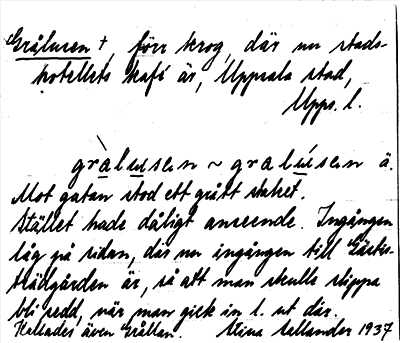 Grålusen †, förr krog, där nu stads-
hotellets kafé är, Uppsala stad,
Upps. l.
gràlusen ~ gralúsen ä.
Mot gatan stod ett grått staket.
Stället hade dåligt anseende. Ingången
låg på sidan, där nu ingången till Gästis-
trädgården är, så att man skulle slippa
bli sedd, när man gick in l. ut där.
Kallades även Grållan. Stina Sellander 1937